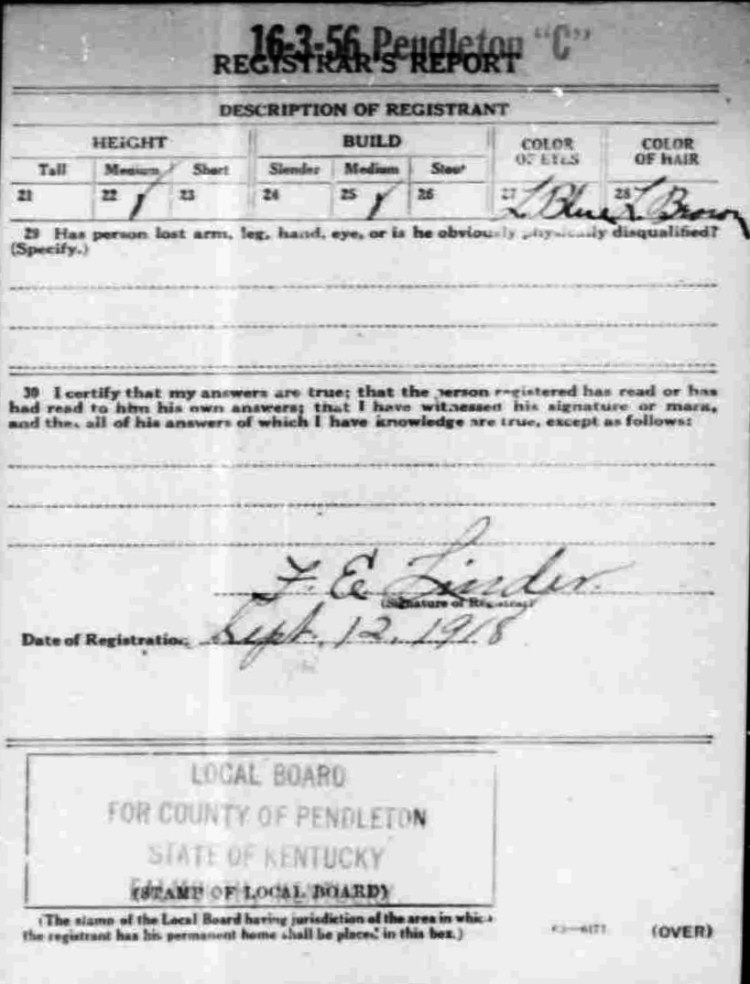 16-3-56 Pendleton "C"
REGISTRAR'S REPORT
DESCRIPTION OF REGISTRANT
HEIGHT BUILD COLOR OF EYES COLOR OF HAIR
Tall Medium Short Slender Medium Stout
21 22 ✓ 23 24 25 ✓ 26 27 L. Blue 28 L. Brown
29 Has person lost arm, leg, hand, eye, or is he obviously physically disqualified?
(Specify.)
30 I certify that my answers are true; that the person registered has read or has
had read to him his own answers; that I have witnessed his signature or mark,
and that all of his answers of which I have knowledge are true, except as follows:
F. E. Linder.
(Signature of Registrar)
Date of Registration Sept. 12, 1918
LOCAL BOARD
FOR COUNTY OF PENDLETON
STATE OF KENTUCKY
(STAMP OF LOCAL BOARD)
(The stamp of the Local Board having jurisdiction of the area in which
the registrant has his permanent home shall be placed in this box.)
(OVER)